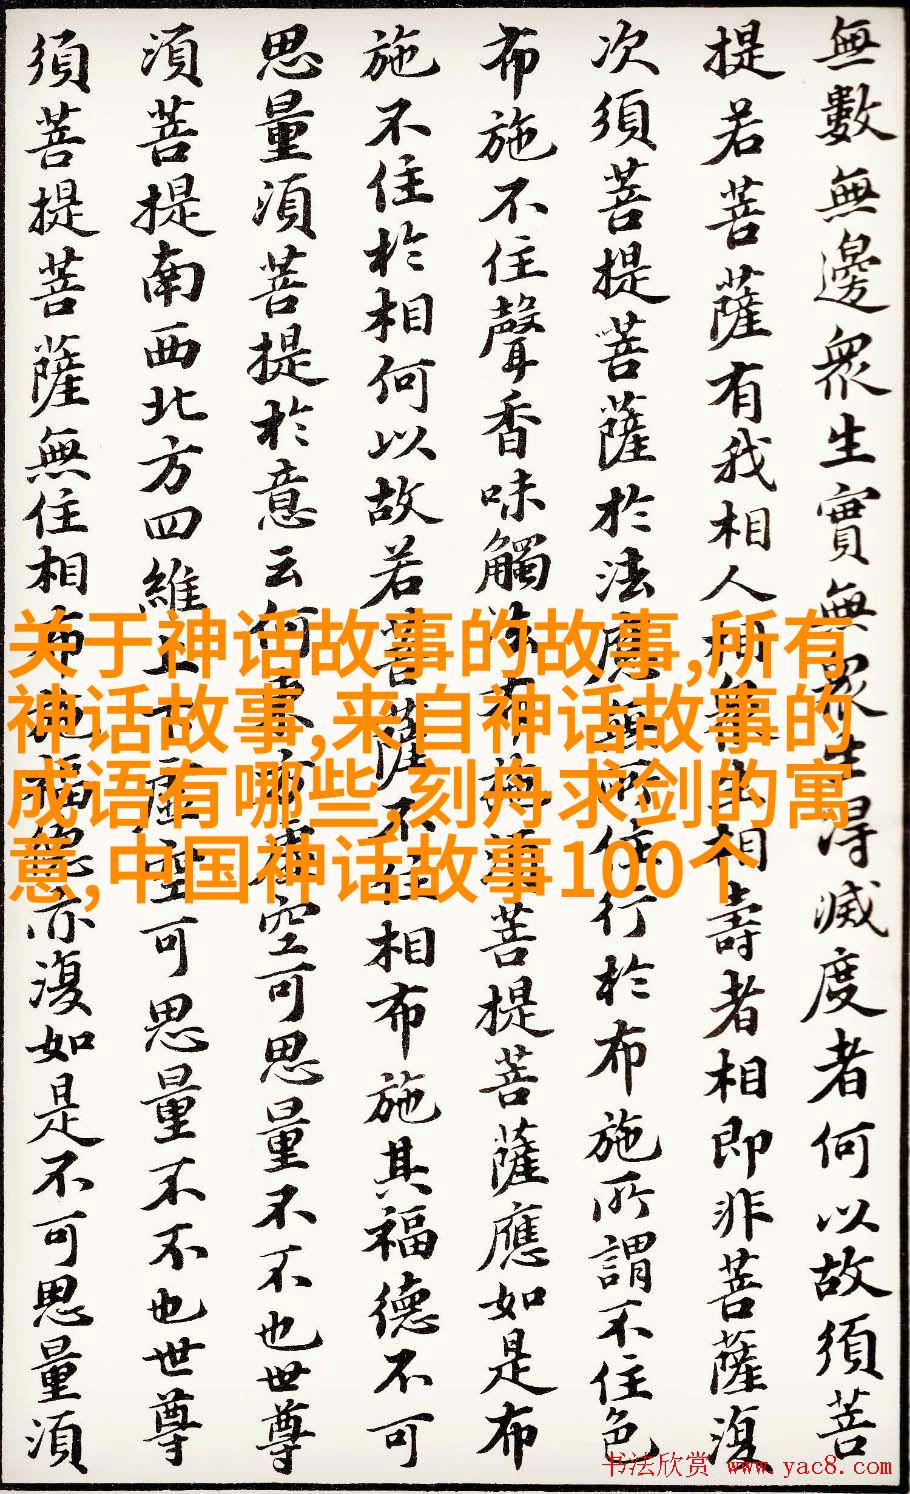 無數無邊眾生實無眾生得滅度者何以故須菩
提若菩薩有我相人相眾生相壽者相即非菩薩復
次須菩提菩薩於法應無所住行於布施所謂不住色
布施不住聲香味觸法布施須菩提菩薩應如是布
施不住於相何以故若菩薩不住相布施其福德不可
思量須菩提於意云何東方虛空可思量不不也世尊
須菩提南西北方四維上下虛空可思量不不也世尊
須菩提菩薩無住相布施福德亦復如是不可思量須
关于神话故事的故事,所有
神话故事,来自神话故事的
成语有哪些,刻舟求剑的寓
意,中国神话故事100个
书法欣赏 www.yac8.com